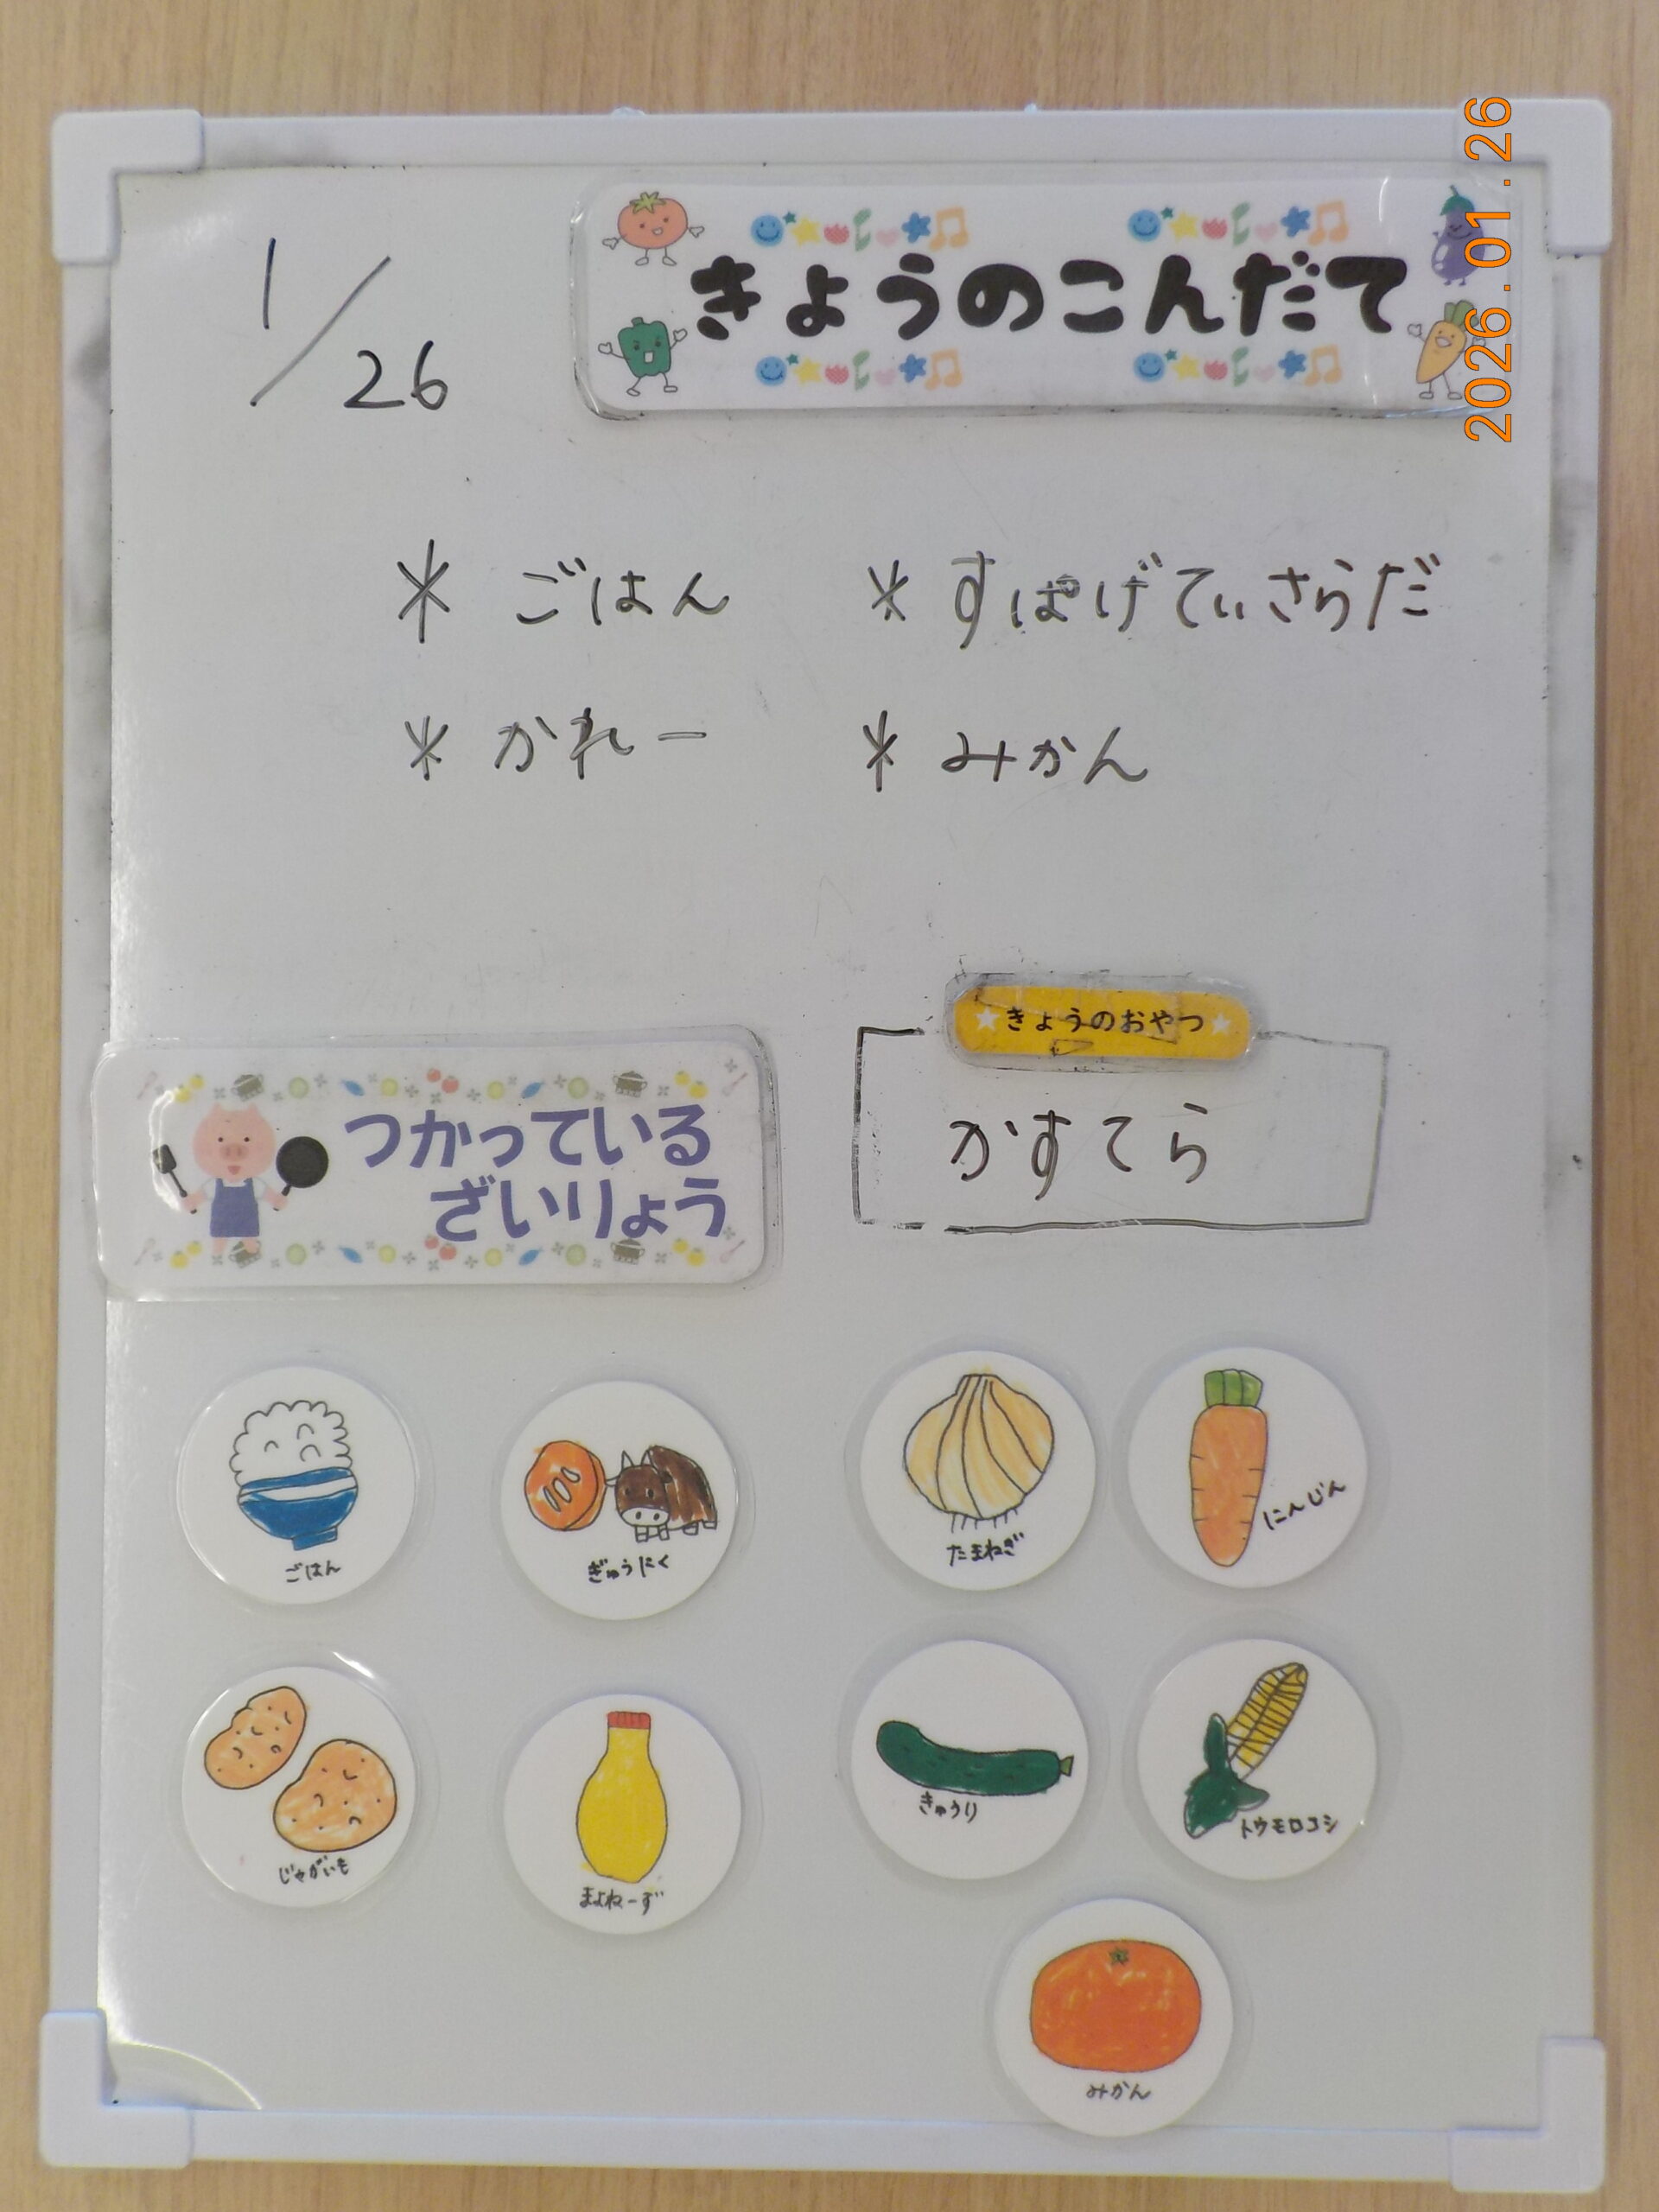 2026.01.26
1/26
きょうのこんだて
* ごはん
* すぱげてぃさらだ
* かれー
* みかん
きょうのおやつ
かすてら
つかっている
ざいりょう
ごはん
ぎゅうにく
たまねぎ
にんじん
じゃがいも
まよねーず
きゅうり
トウモロコシ
みかん